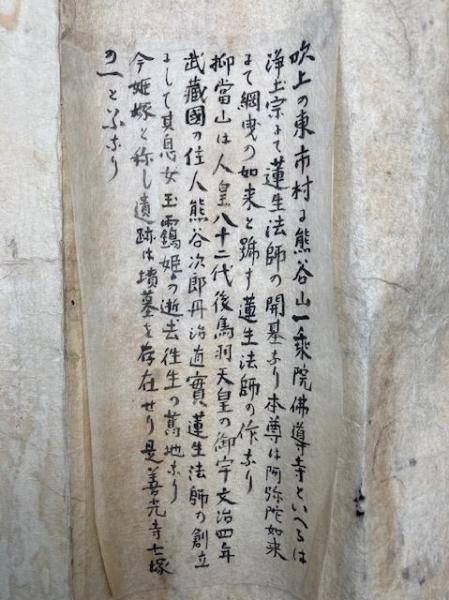 吹上の東市村に熊谷山一乘院佛導寺といへるは
浄土宗にて蓮生法師の開基なり本尊は阿弥陀如来
にて綱曳の如来と號す蓮生法師の作なり
抑當山は人皇八十二代後鳥羽天皇の御宇文治四年
武藏國の住人熊谷次郎丹治直實蓮生法師の創立
にして其息女玉靏姫の逝去往生の舊地なり
今姫塚と称し遺跡は墳墓を存在せり是善光寺七塚
の一と云なり